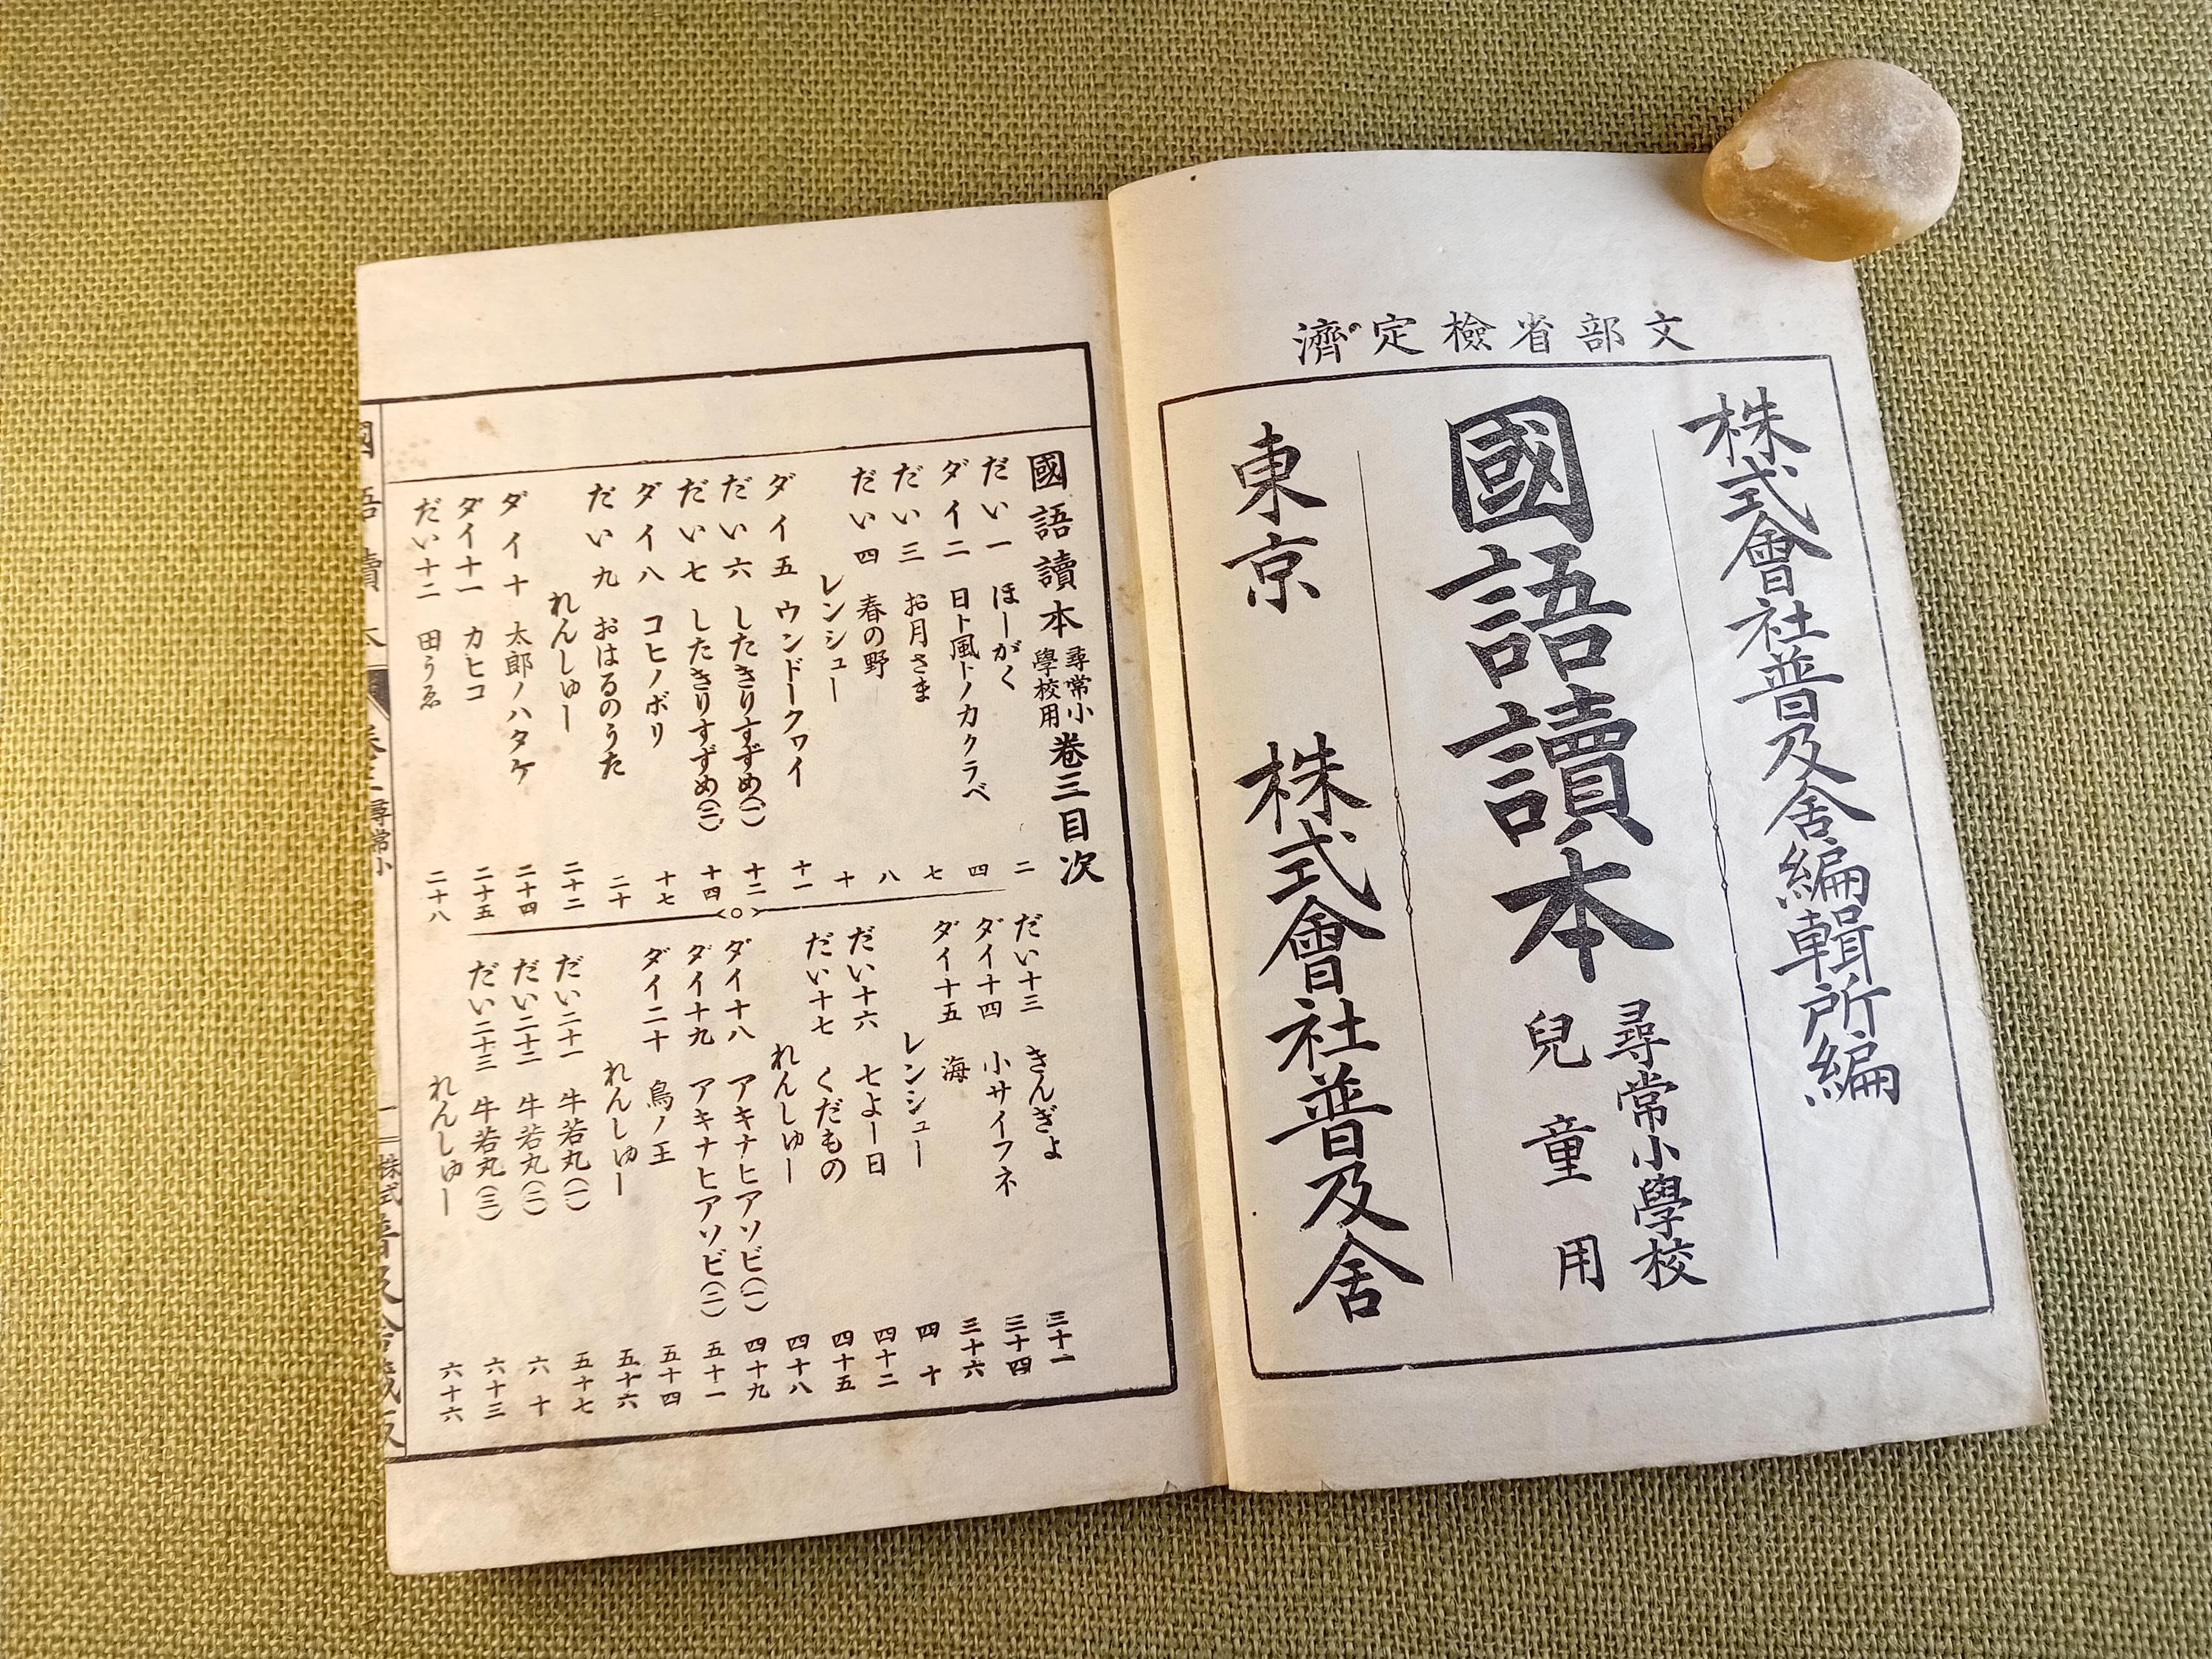 文部省檢定濟
株式會社普及舍編輯所編
國語讀本
尋常小學校
兒童用
東京 株式會社普及舍
國語讀本 尋常小學校用 卷三目次
だい一 ほーがく 二
ダイ二 日ト風トノカクラベ 四
だい三 お月さま 七
だい四 春の野 八
レンシュー 十
ダイ五 ウンドークヮイ 十一
だい六 したきりすずめ(一) 十二
だい七 したきりすずめ(二) 十四
ダイ八 コヒノボリ 十七
だい九 おはるのうた 二十
れんしゅー 二十二
ダイ十 太郎ノハタケ 二十四
ダイ十一 カヒコ 二十五
だい十二 田うゑ 二十八
だい十三 きんぎよ 三十一
ダイ十四 小サイフネ 三十四
ダイ十五 海 三十六
レンシュー 四十
だい十六 七よー日 四十二
だい十七 くだもの 四十五
れんしゅー 四十八
ダイ十八 アキナヒアソビ(一) 四十九
ダイ十九 アキナヒアソビ(二) 五十一
ダイ二十 鳥ノ王 五十四
れんしゅー 五十六
だい二十一 牛若丸(一) 五十七
だい二十二 牛若丸(二) 六十
だい二十三 牛若丸(三) 六十三
れんしゅー 六十六
國語讀本 卷三 尋常小 一 株式 普及舍藏版